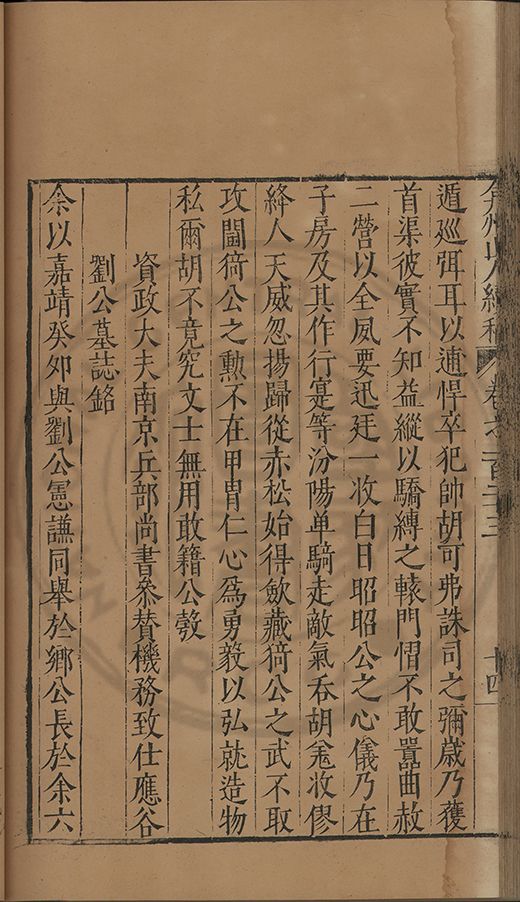 弇州山人續稿 卷之一百二十三 十四
遁巡弭耳以逋悍卒犯帥胡可弗誅司之彌歲乃獲
首渠彼實不知益縱以驕縛之轅門慴不敢囂曲赦
二營以全夙要迅廷一收白日昭昭公之心儀乃在
子房及其作行寔等汾陽单騎走敵氣吞胡㝹收僇
絳人天威忽揚歸從赤松始得斂藏猗公之武不取
攻闘猗公之勲不在甲冑仁心爲勇毅以弘就造物
私爾胡不竟究文士無用敢籍公彀
資政大夫南京兵部尚書叅賛機務致仕應谷
劉公墓誌銘
余以嘉靖癸夘與劉公憲謙同舉於鄉公長於余六